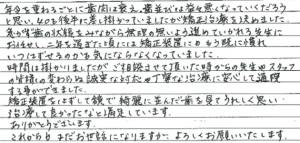 年令を重ねるごとに歯肉は衰え、歯並びは益々悪くなっていくだろう
と思い、40を後半に差し掛かっていましたが矯正治療を決めました。
急がず歯の状態をみながら無理の無いよう進めていかれる先生に
お任せし、二年を過ぎた頃には矯正装置にも もう慣れて
いつはずせるのかを気にならなくなっていました。
時間は掛かりましたがご相談させて頂いた時からの先生やスタッフ
の皆様の変わらぬ誠実な対応の丁寧な治療に安心して通院
する事ができました。
矯正装置をはずして鏡で綺麗に並んだ歯を見てうれしく思い
治療して良かったなと満足しています。
ありがとうございます。
これからも まだお世話になりますが よろしくお願いいたします。